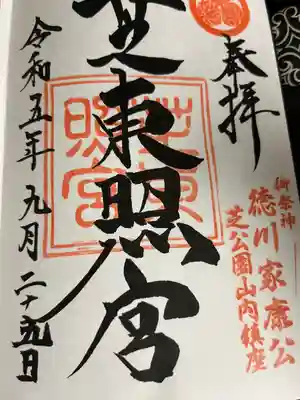 奉拝
御祭神
徳川家康公
芝公園山内鎮座
芝東照宮
芝東照宮
令和五年九月二十五日